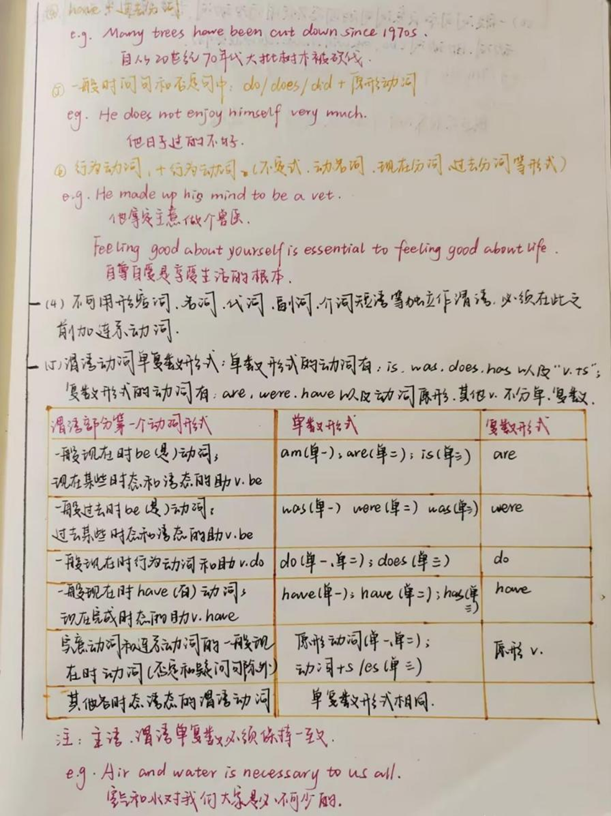 e.g. Many trees have been cut down since 1970s.
自从20世纪70年代大批树木被砍伐.
⑤ 一般时间句和否定句中: do/does/did + 原形动词
eg. He does not enjoy himself very much.
他日子过的不好.
⑥ 行为动词, + 行为动词。(不定式、动名词、现在分词、过去分词等形式)
e.g. He made up his mind to be a vet.
他拿定主意做个兽医.
Feeling good about yourself is essential to feeling good about life.
自尊自爱是享受生活的根本.
(4) 不可用形容词、名词、代词、副词、介词短语等独立作谓语, 必须在此之
前加连系动词.
(5) 谓语动词单复数形式: 单数形式的动词有: is. was. does. has 以及"v.+s";
复数形式的动词有: are. were. have 以及动词原形. 其他v. 不分单、复数.
谓语部分第一个动词形式 单数形式 复数形式
一般现在时be(是)动词; am(单一); are(单二); is(单三) are
现在某些时态和语态的助v. be
一般过去时be(是)动词; was(单一) were(单二) was(单三) were
过去某些时态和语态的助v. be
一般现在时行为动词和助v. do do(单一、单二); does(单三) do
一般现在时have(有)动词; have(单一); have(单二); has(单三) have
现在完成时态的助v. have
实意动词和连系动词的一般现 原形动词(单一、单二); 原形 v.
在时动词(否定和疑问句除外) 动词+s/es(单三)
其他各时态语态的谓语动词 单复数形式相同.
注: 主语、谓语单复数必须保持一致.
e.g. Air and water is necessary to us all.
空气和水对我们大家是必不可少的.